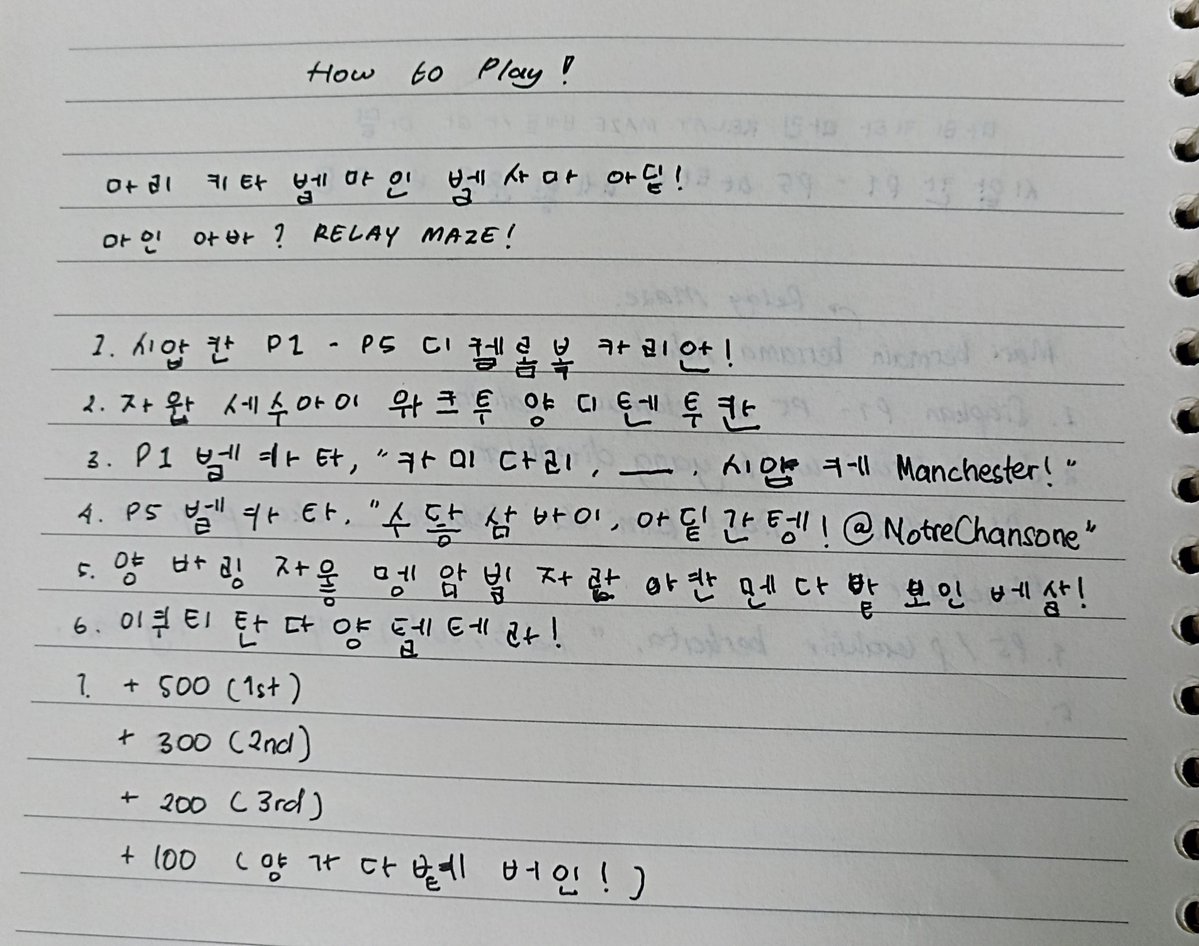 How to Play!
마리 키타 벨마인 벨사마 아딭!
마인 아바? RELAY MAZE!
1. 시압 칸 P1 - P5 디 켈롬복 카리안!
2. 자왑 세수아이 와크투 양 디텐투칸
3. P1 벨카타, "카미 다리, ___, 시얍 케 Manchester!"
4. P5 벨카타, "수닿 삼바이, 아딭 간텡! @NotreChansone"
5. 양 바링 자웋 멩암빌 자랔 아칸 멘다발 보인 베살!
6. 이쿠티 탄다 양 텔테라!
7. + 500 (1st)
+ 300 (2nd)
+ 200 (3rd)
+ 100 (양 가 다 버인!)